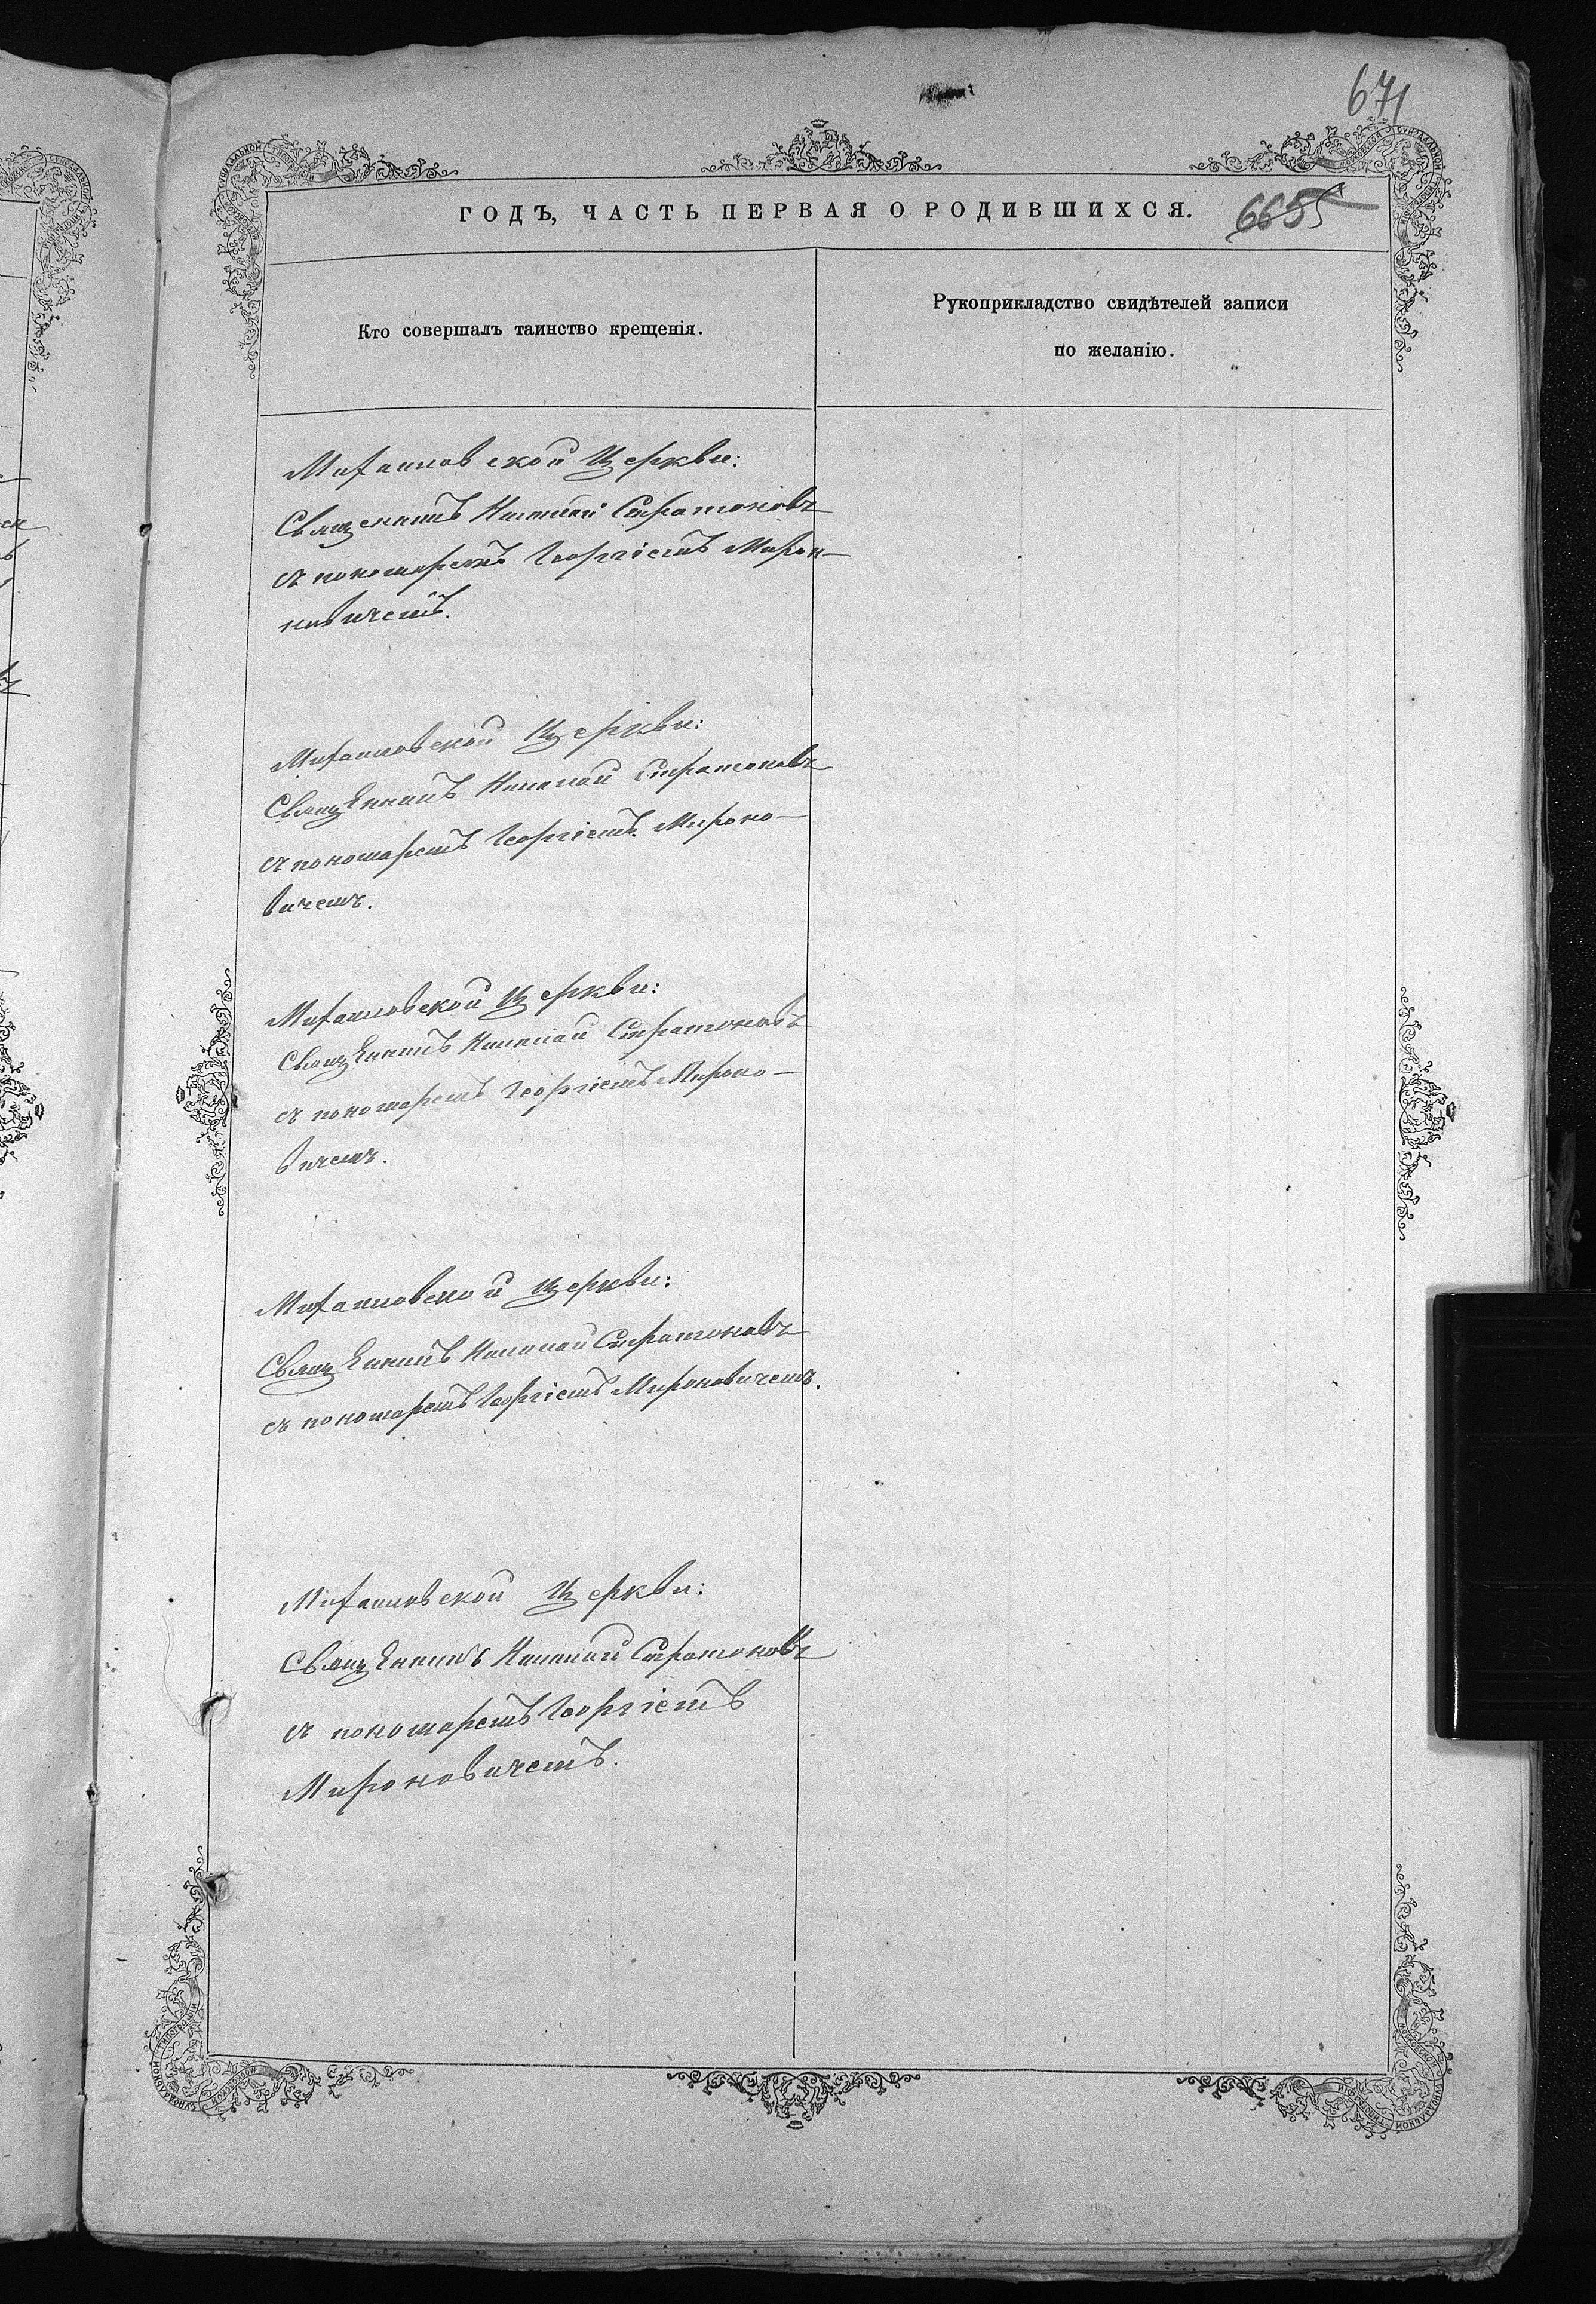 671
ГОДЪ, ЧАСТЬ ПЕРВАЯ О РОДИВШИХСЯ.
6655
Кто совершалъ таинство крещенія.
Рукоприкладство свидѣтелей записи
по желанію.
Михаиловской Церкви:
Священникъ Николай Стратоновъ
съ пономаремъ Георгіемъ Мирон-
новичемъ.
Михаиловской Церкви:
Священникъ Николай Стратоновъ
съ пономаремъ Георгіемъ Мироно-
вичемъ.
Михаиловской Церкви:
Священникъ Николай Стратоновъ
съ пономаремъ Георгіемъ Мироно-
вичемъ.
Михаиловской Церкви:
Священникъ Николай Стратоновъ
съ пономаремъ Георгіемъ Мироновичемъ.
Михаиловской Церкви:
Священникъ Николай Стратоновъ
съ пономаремъ Георгіемъ
Мироновичемъ.